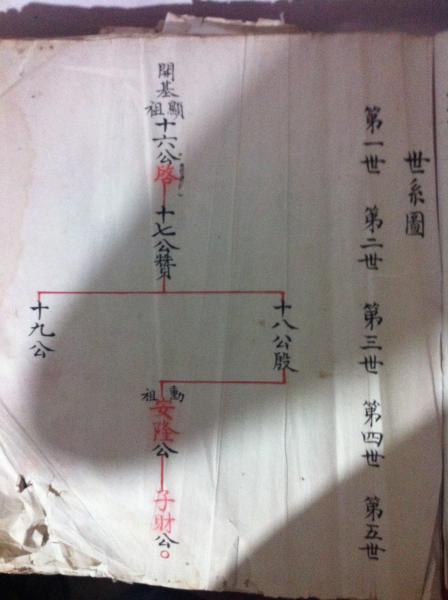 世系圖
第一世 第二世 第三世 第四世 第五世
開基
顯祖
十六公啓
十七公贊
十八公殷
十九公
勳祖
安隆公
子財公